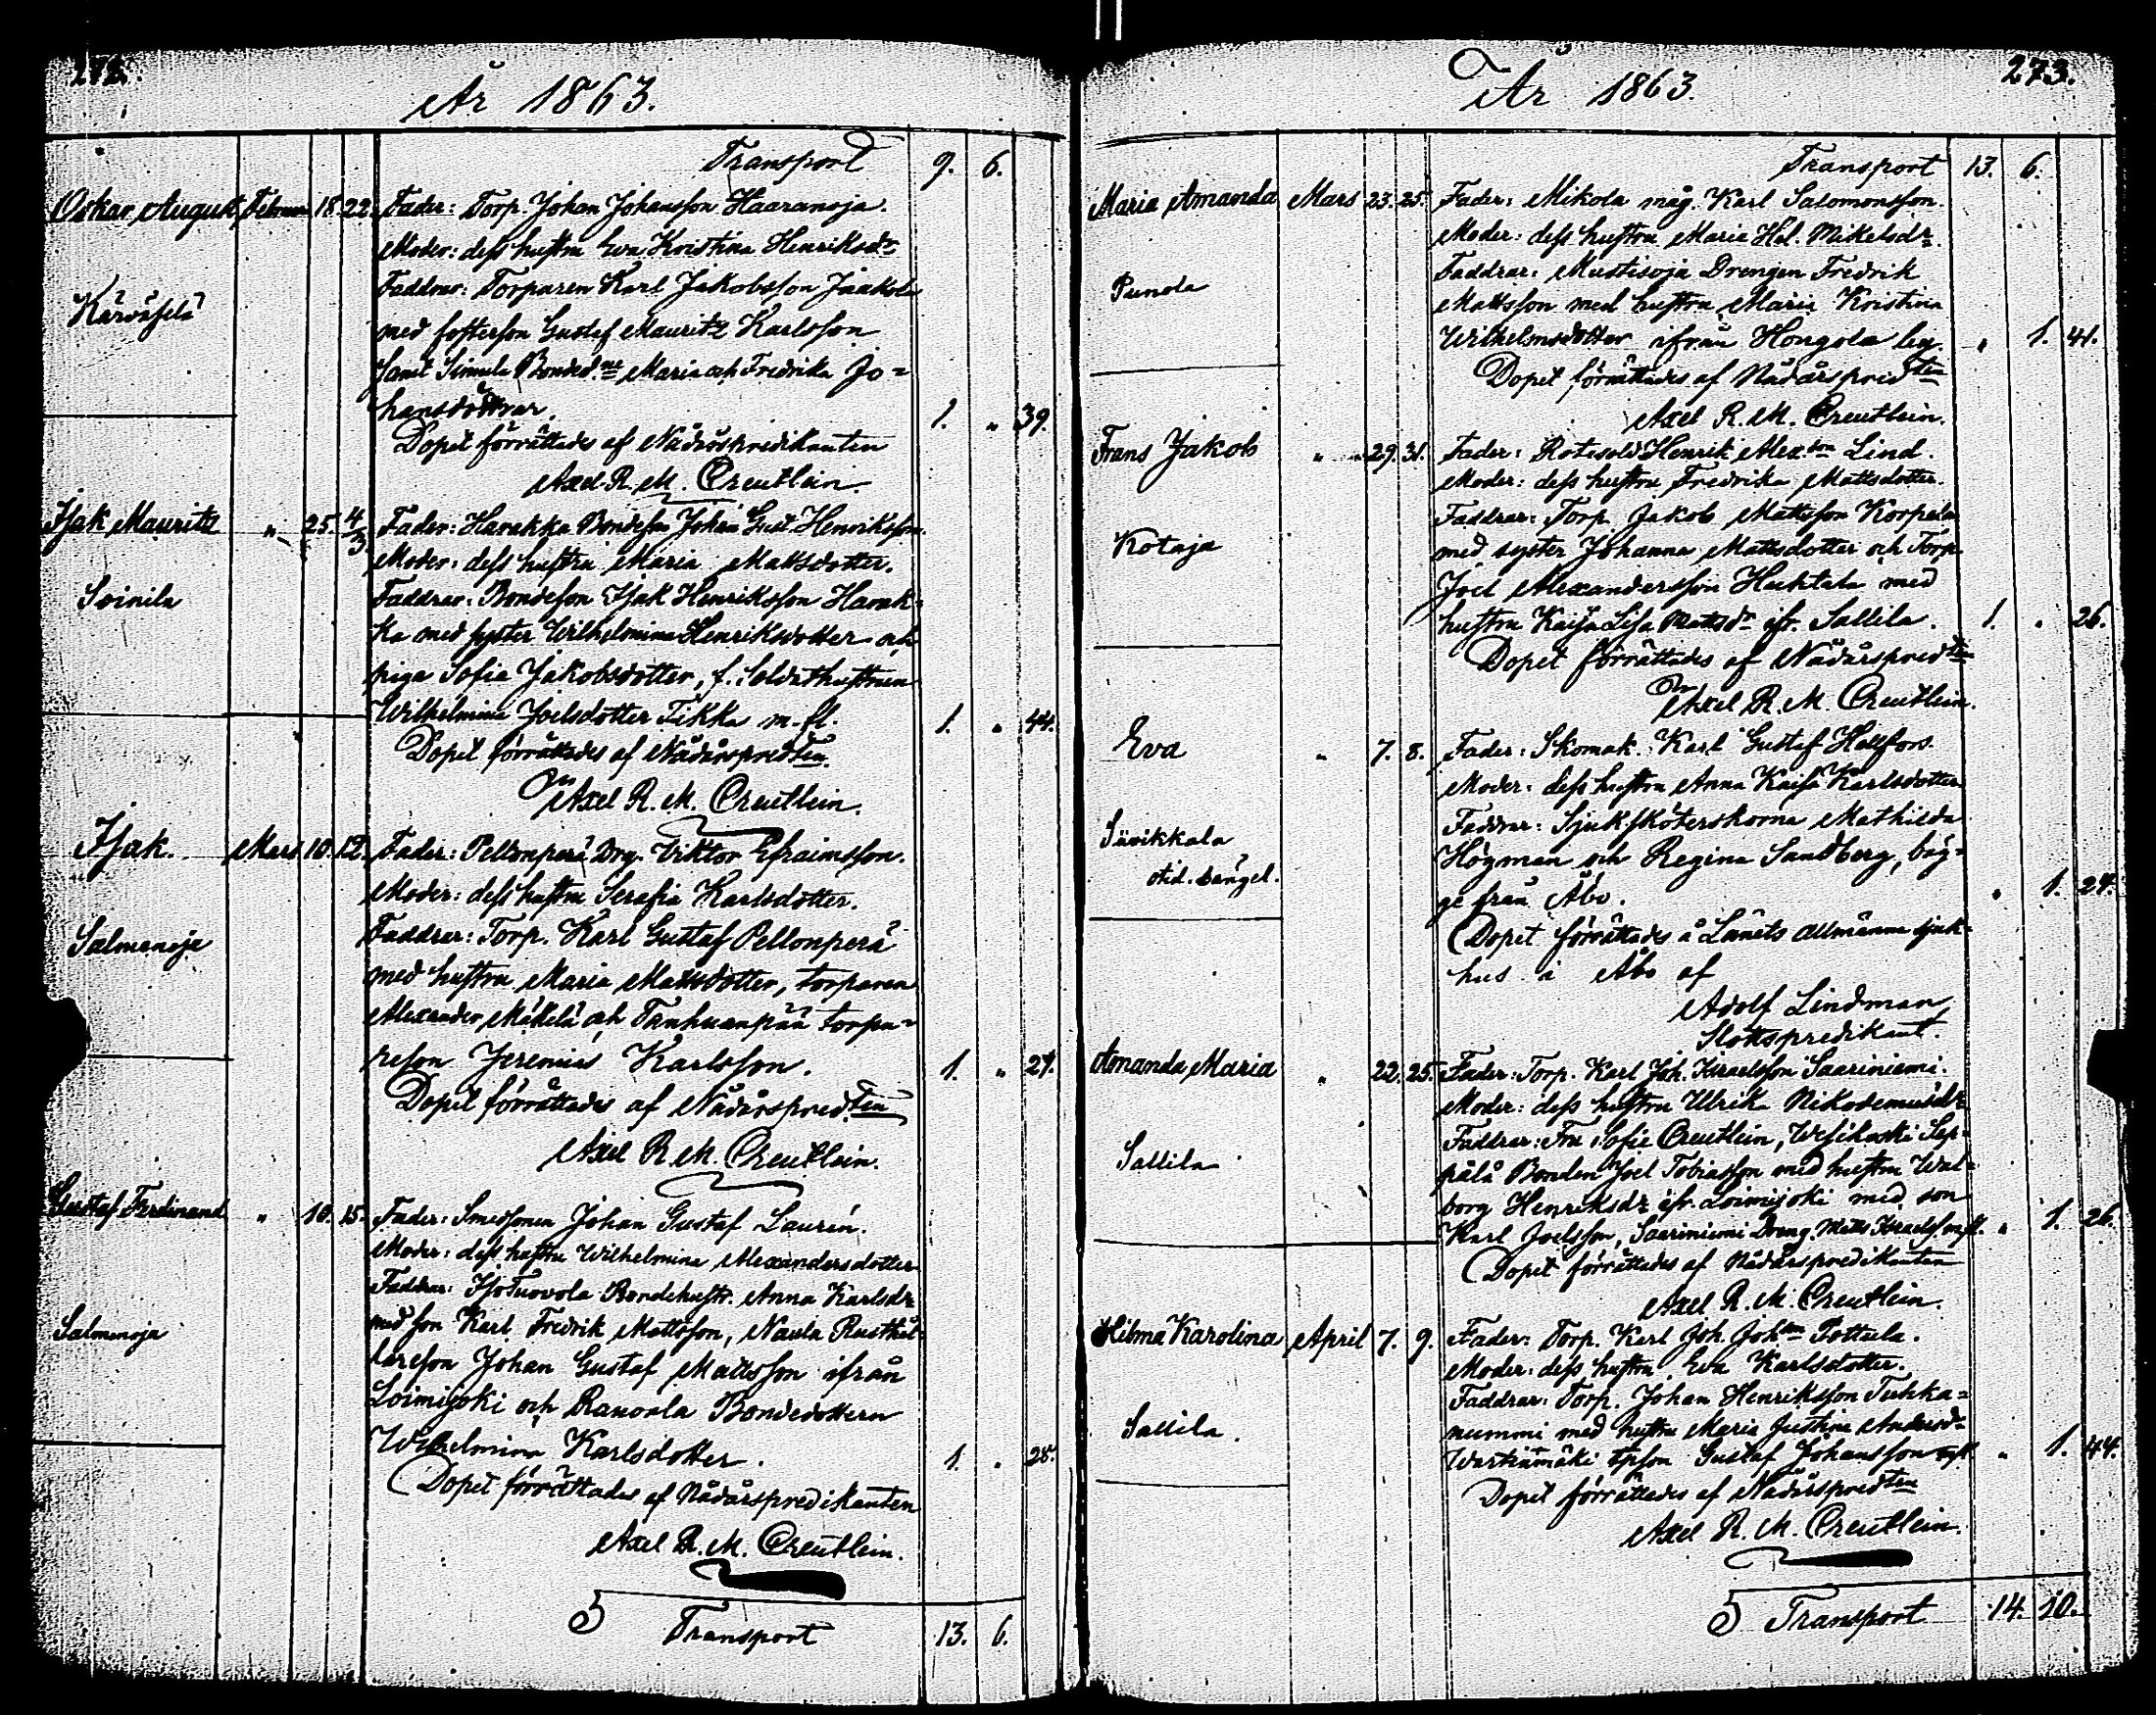 272.
År 1863.
Transport 9. 6.
Oskar August Februari 18. 22. Fader: Torp. Johan Johansson Haaranoja.
Moder: dess hustru Eva Kristina Henriksdr
Faddrar: Torparen Karl Jakobsson Jaakola
med fosterson Gustaf Mauritz Karlsson
samt Bonded. Maria och Fredrika Jo=
hansdöttrar. 1. " 39.
Dopet förrättades af Nådårspredikanten
Axel R. M. Creutlein.
Isak Mauritz " 25. 4/3. Fader: Harakka Bondeson Johan Gust. Henriksson.
Moder: dess hustru Maria Mattsdotter.
Soinila
Faddrar: Bondeson Isak Henriksson Harak=
ka med syster Wilhelmina Henriksdotter och
piga Sofia Jakobsdotter, f. Soldathustrun
Wilhelmina Joelsdotter Tikka m. fl. 1. " 44.
Dopet förrättades af Nådårspredten
Axel R. M. Creutlein.
Isak. Mars 10. 12. Fader: Pellonperä Drg. Viktor Efraimsson.
Moder: dess hustru Serafia Karlsdotter.
Salmenoja
Faddrar: Torp. Karl Gustaf Pellonperä
med hustru Maria Mattsdotter, torparen
Alexander Mäkelä och Tanhuanpää torpa=
reson Jeremias Karlsson. 1. " 27.
Dopet förrättades af Nådårspredten
Axel R. M. Creutlein.
Gustaf Ferdinand " 10. 15. Fader: Smedsonen Johan Gustaf Laurén.
Moder: dess hustru Wilhelmina Alexandersdotter
Faddrar: IsoTuovola Bondehustr. Anna Karlsdr
Salmenoja
med son Karl Fredrik Mattsson, Naula Rusthål=
lareson Johan Gustaf Mattsson ifrån
Loimijoki och Ranoula Bondedottern
Wilhelmina Karlsdotter. 1. " 28.
Dopet förrättades af Nådårspredikanten
Axel R. M. Creutlein.
5 Transport 13. 6.
273.
År 1863.
Transport 13. 6.
Maria Amanda Mars 23. 25. Fader: Mikola måg. Karl Salomonsson.
Moder: dess hustru Maria Hel. Mikelsdr.
Punola
Faddrar: Mustisoja Drengen Fredrik
Mattsson med hustru Maria Kristina
Wilhelmsdotter ifrån Hongola by. " 1. 41.
Dopet förrättades af Nådårspredten
Axel R. M. Creutlein.
Frans Jakob " 29. 31. Fader: Rotesold Henrik Alex:son Lind.
Moder: dess hustru Fredrika Mattsdotter.
Kotaja
Faddrar: Torp. Jakob Mattsson Korpela
med syster Johanna Mattsdotter och Torp.
Joel Alexandersson Huhtala med
hustru Kaisa Lisa Mattsdr ifr. Sallila. 1. " 26.
Dopet förrättades af Nådårspredten
Axel R. M. Creutlein.
Eva " 7. 8. Fader: Skomak. Karl Gustaf Hellfors.
Moder: dess hustru Anna Kaisa Karlsdotter
Siivikkala
Faddrar: Sjuksköterskorna Mathilda
Högman och Regina Sandberg, bäg=
ge från Åbo. " 1. 24.
Dopet förrättades å Länets allmänna sjuk=
hus i Åbo af
Adolf Lindman
Slottspredikant.
Amanda Maria " 22. 25. Fader: Torp. Karl Joh. Israelsson Saariniemi.
Moder: dess hustru Ulrika Nikodemusdr
Sallila
Faddrar: Fru Sofie Creutlein, Wesikoski Sep=
pälä Bonden Joel Tobiasson med hustru Wal=
borg Henriksdr ifr. Loimijoki med son
Karl Joelsson, Saariniemi Dreng. Matts Israelss. m.fl. " 1. 26.
Dopet förrättades af Nådårspredikanten
Axel R. M. Creutlein.
Hilma Karolina April 7. 9. Fader: Torp. Karl Joh. Johsson Tottula.
Moder: dess hustru Eva Karlsdotter.
Sallila.
Faddrar: Torp. Johan Henriksson Tuhka=
nummi med hustru Maria Justina Andersdr
Wartiamäki tpson Gustaf Johansson m.fl. " 1. 44.
Dopet förrättades af Nådårspredten
Axel R. M. Creutlein.
5 Transport 14. 10.